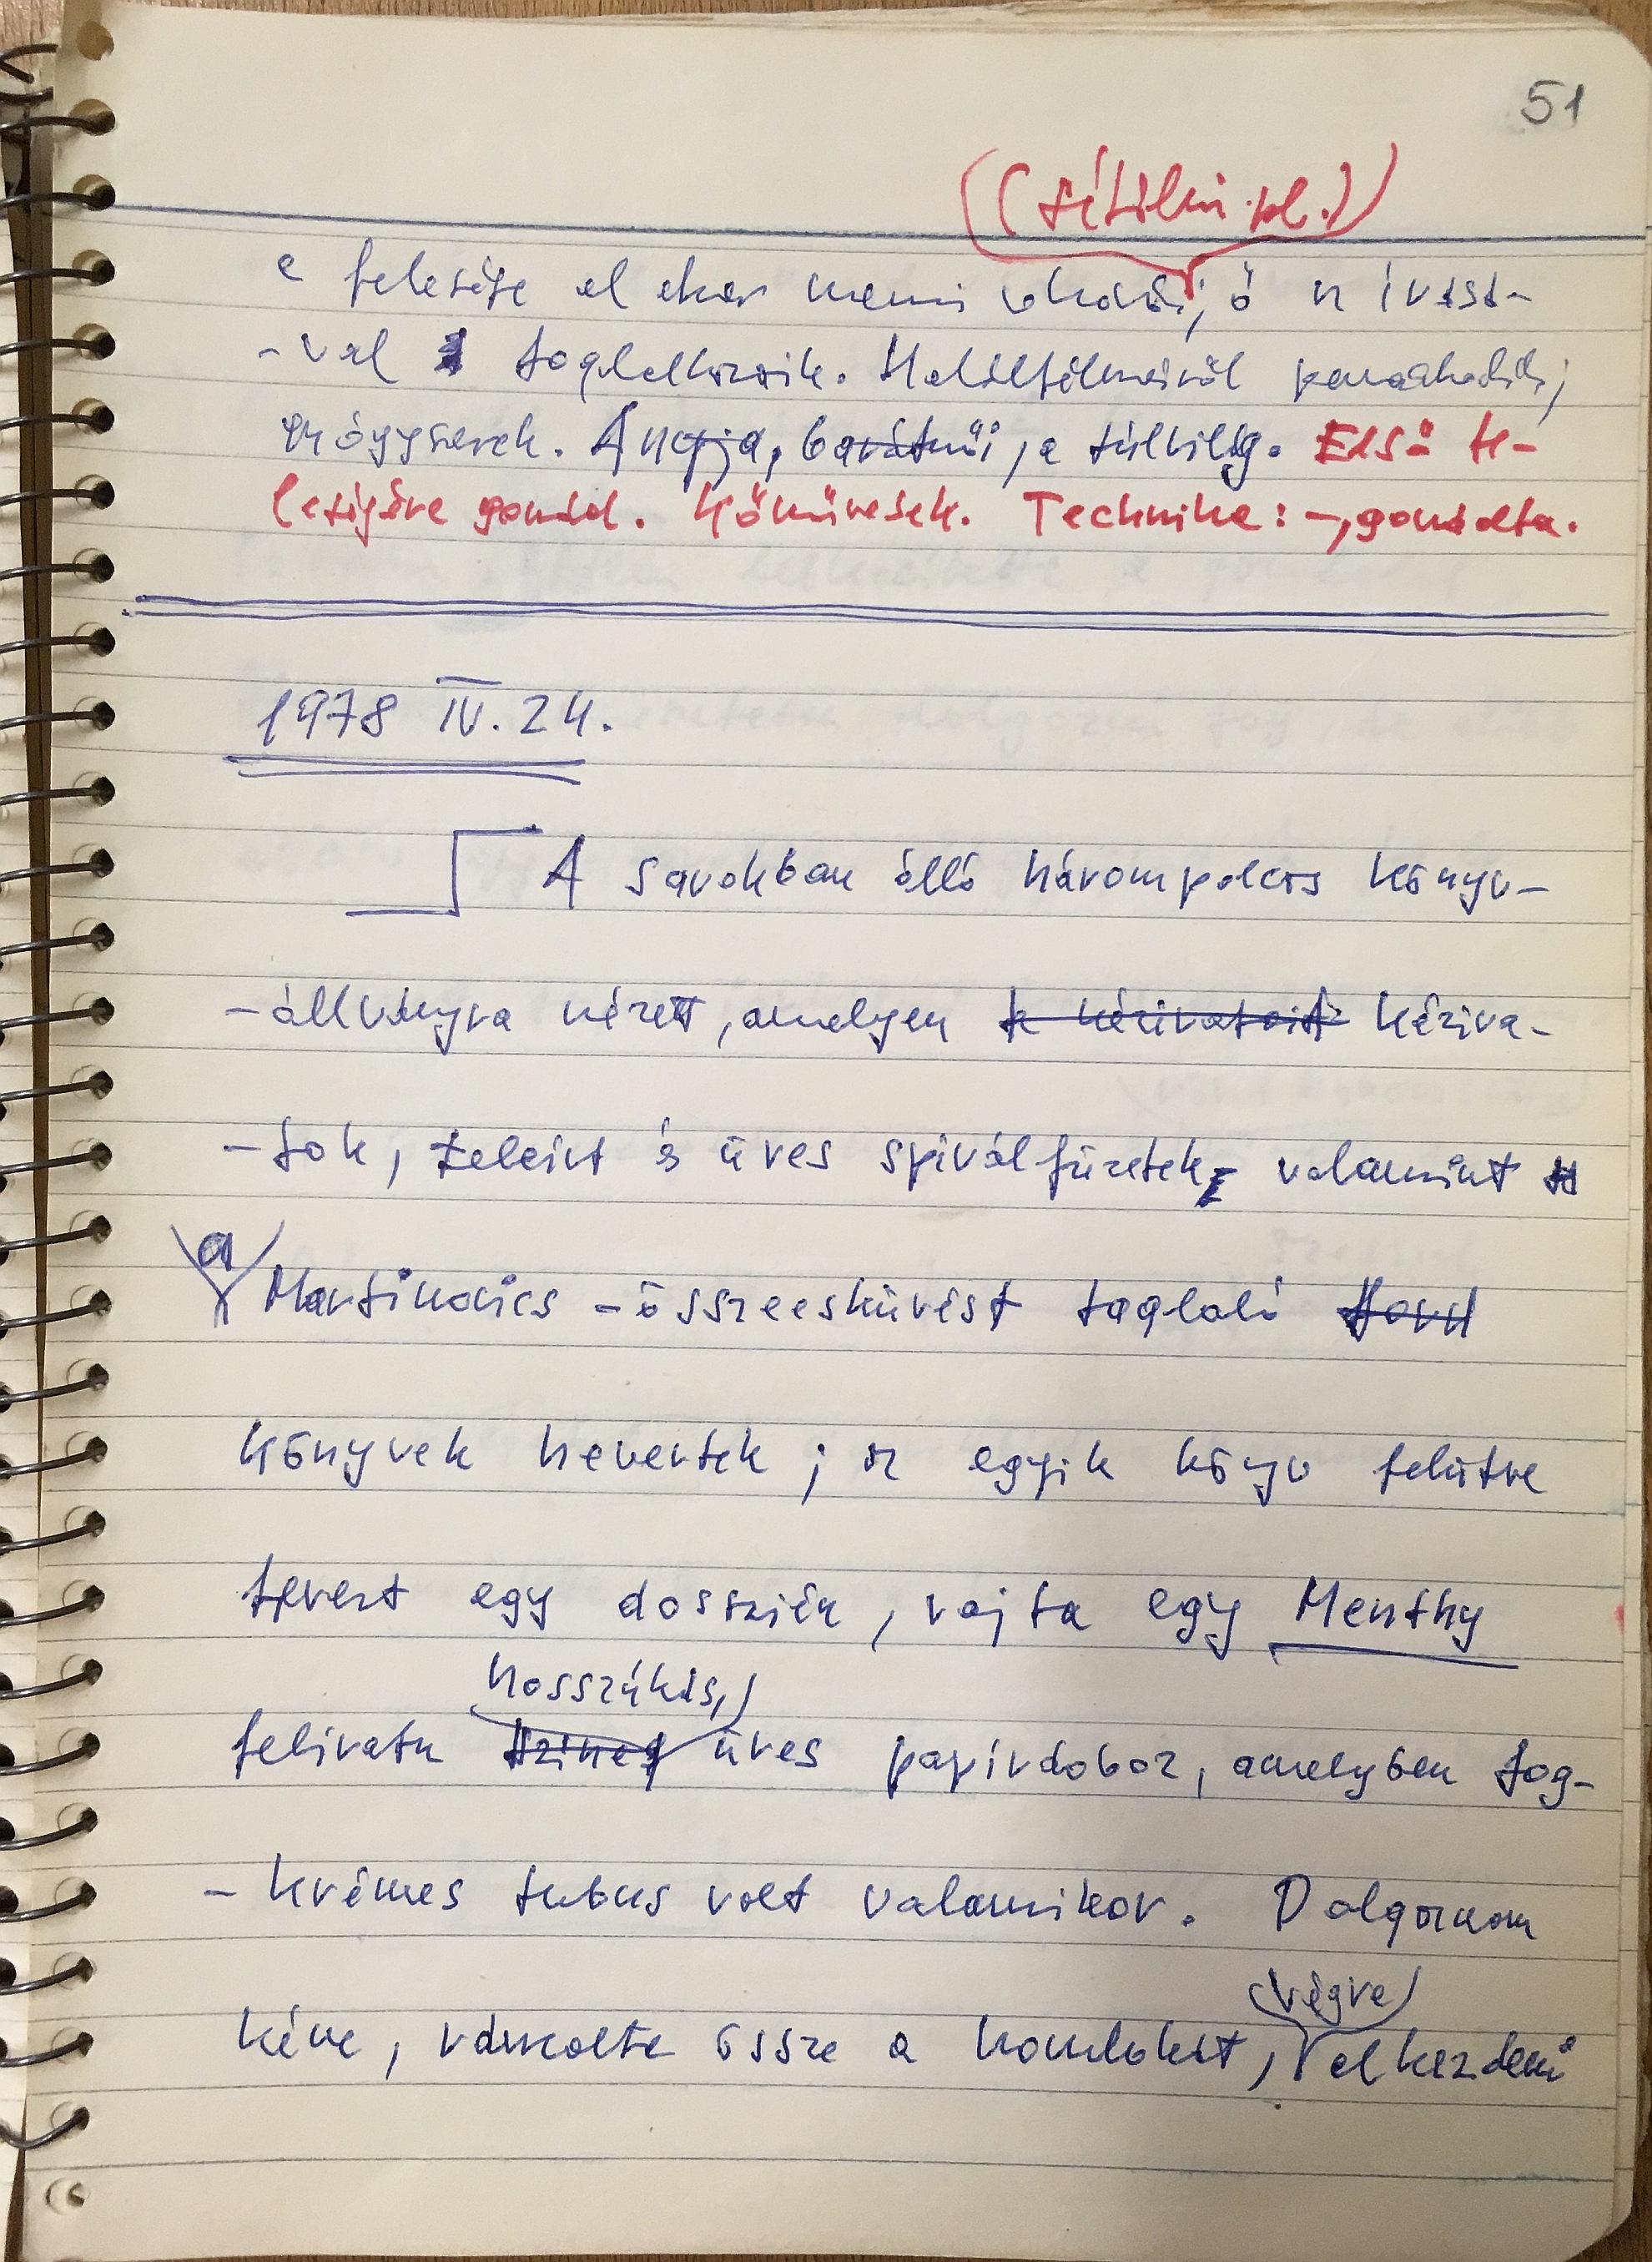 51
(sétálni pl.)
a felesége el akar menni vhová; ő az írást-
-val foglalkozik. Halálfélelméről panaszkodik;
gyógyszerek. Anyja, barátnői, a túlvilág. Első fe-
leségére gondol. Kőművesek. Technika: –, gondolta.
1978 IV. 24.
A sarokban álló hárompolcos könyv-
-állványra nézett, amelyen k kéziratait kézira-
-tok, teleírt és üres spirálfüzetek, valamint
a
Martinovics-összeesküvést taglaló
könyvek hevertek; az egyik könyv felütve
hevert egy dosszién, rajta egy Menthy
hosszúkás,
feliratú színes üres papírdoboz, amelyben fog-
-krémes tubus volt valamikor. Dolgoznom
végre
kéne, ráncolta össze a homlokát, elkezdeni